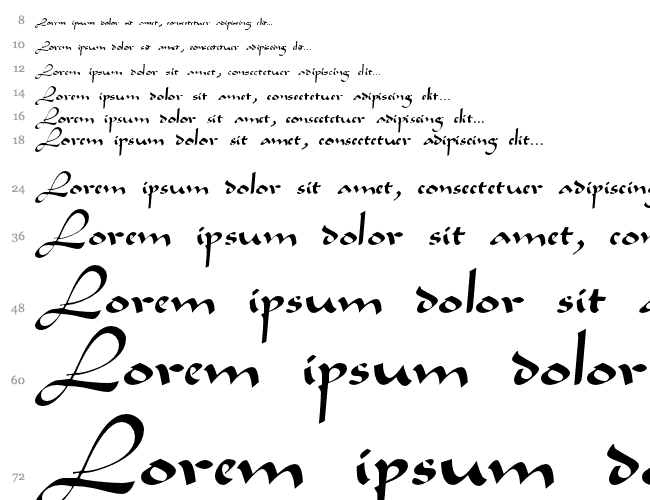 8 Lorem ipsum dolor sit amet, consectetuer adipiscing elit...
10 Lorem ipsum dolor sit amet, consectetuer adipiscing elit...
12 Lorem ipsum dolor sit amet, consectetuer adipiscing elit...
14 Lorem ipsum dolor sit amet, consectetuer adipiscing elit...
16 Lorem ipsum dolor sit amet, consectetuer adipiscing elit...
18 Lorem ipsum dolor sit amet, consectetuer adipiscing elit...
24 Lorem ipsum dolor sit amet, consectetuer adipiscing
36 Lorem ipsum dolor sit amet, con
48 Lorem ipsum dolor sit a
60 Lorem ipsum dolor
72 Lorem ipsum do